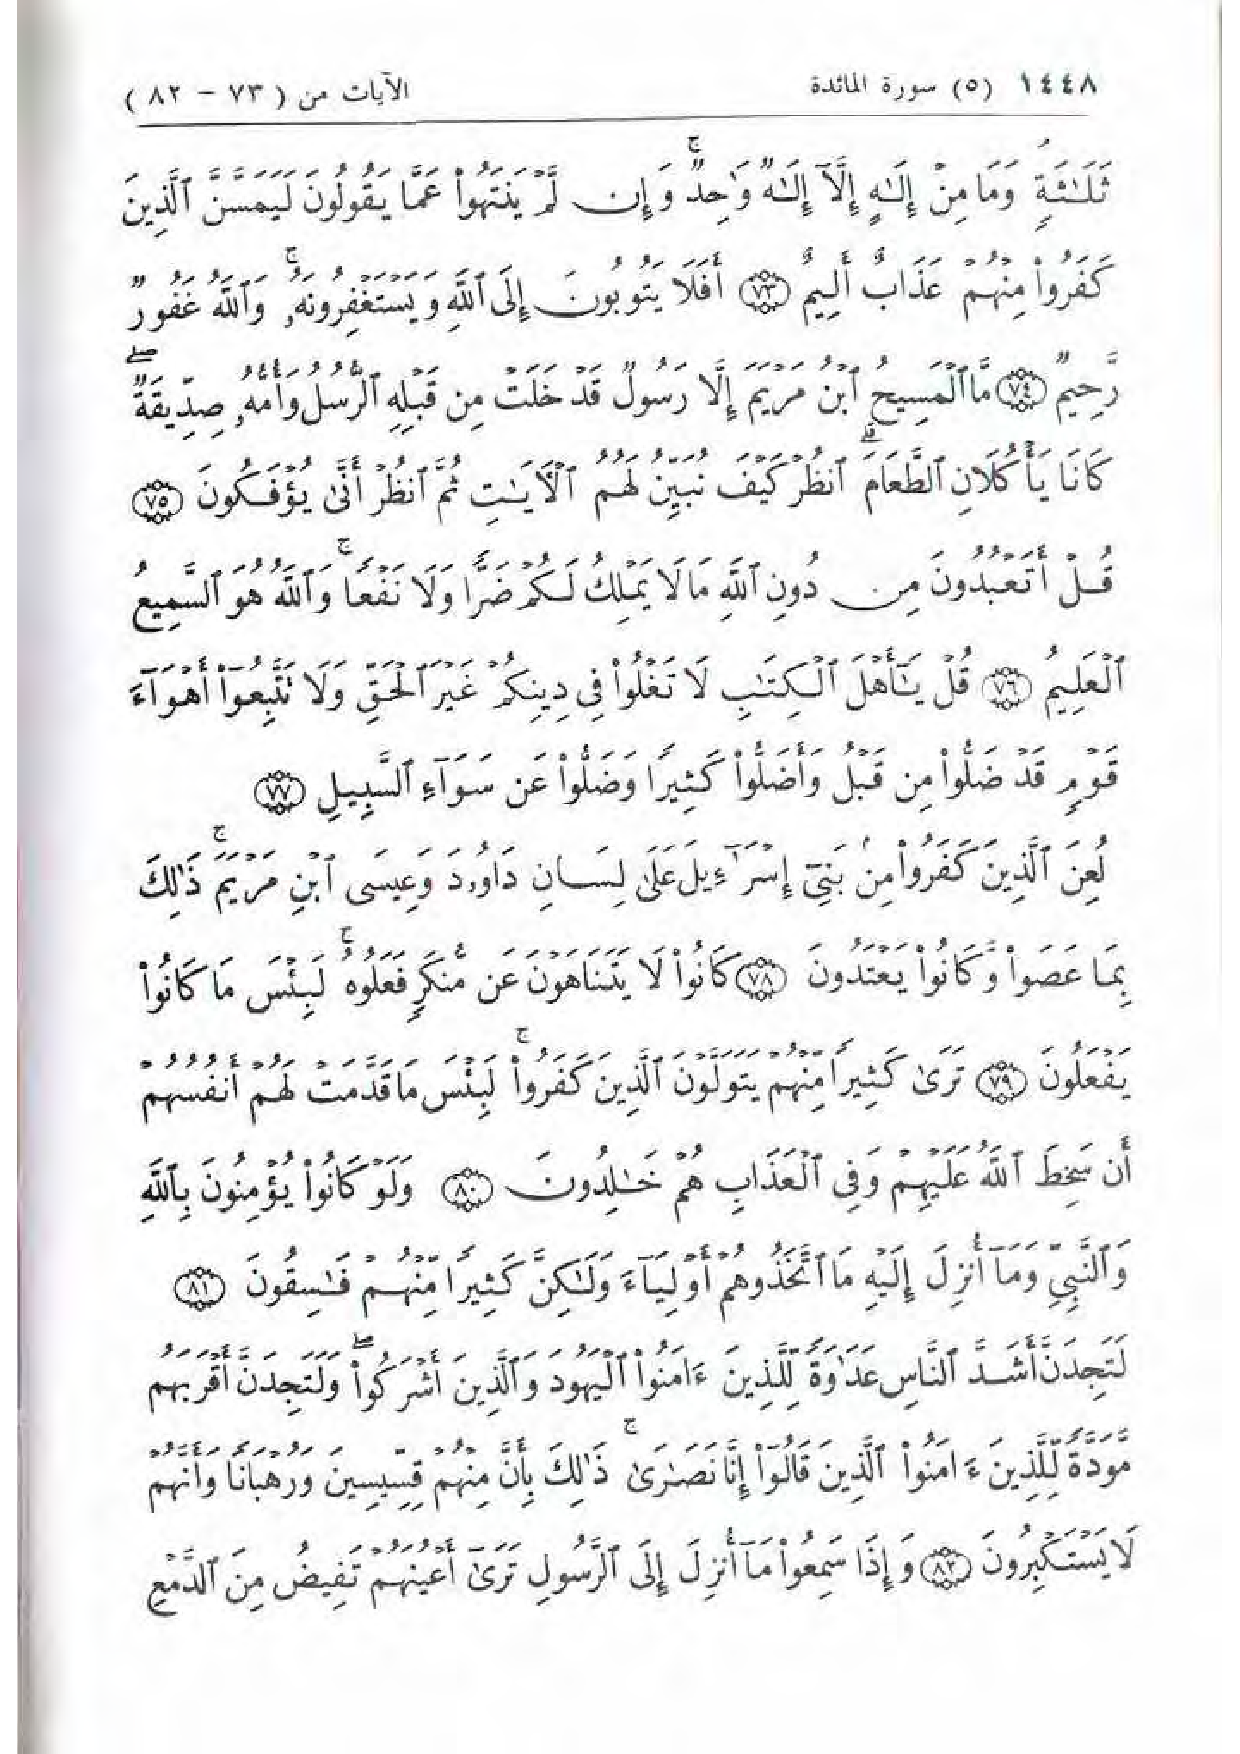 ١٤٤٨ (٥) سورة المائدة الآيات من ( ٧٣ - ٨٢ )
ثَلَـٰثَةٍۘ وَمَا مِنْ إِلَـٰهٍ إِلَّآ إِلَـٰهٌ وَٰحِدٌۚ وَإِن لَّمْ يَنتَهُوا۟ عَمَّا يَقُولُونَ لَيَمَسَّنَّ ٱلَّذِينَ
كَفَرُوا۟ مِنْهُمْ عَذَابٌ أَلِيمٌ ﴿٧٣﴾ أَفَلَا يَتُوبُونَ إِلَى ٱللَّهِ وَيَسْتَغْفِرُونَهُۥۚ وَٱللَّهُ غَفُورٌ
رَّحِيمٌ ﴿٧٤﴾ مَّا ٱلْمَسِيحُ ٱبْنُ مَرْيَمَ إِلَّا رَسُولٌ قَدْ خَلَتْ مِن قَبْلِهِ ٱلرُّسُلُ وَأُمُّهُۥ صِدِّيقَةٌۖ
كَانَا يَأْكُلَانِ ٱلطَّعَامَۗ ٱنظُرْ كَيْفَ نُبَيِّنُ لَهُمُ ٱلْـَٔايَـٰتِ ثُمَّ ٱنظُرْ أَنَّىٰ يُؤْفَكُونَ ﴿٧٥﴾
قُلْ أَتَعْبُدُونَ مِن دُونِ ٱللَّهِ مَا لَا يَمْلِكُ لَكُمْ ضَرًّا وَلَا نَفْعًاۚ وَٱللَّهُ هُوَ ٱلسَّمِيعُ
ٱلْعَلِيمُ ﴿٧٦﴾ قُلْ يَـٰٓأَهْلَ ٱلْكِتَـٰبِ لَا تَغْلُوا۟ فِى دِينِكُمْ غَيْرَ ٱلْحَقِّ وَلَا تَتَّبِعُوٓا۟ أَهْوَآءَ
قَوْمٍ قَدْ ضَلُّوا۟ مِن قَبْلُ وَأَضَلُّوا۟ كَثِيرًا وَضَلُّوا۟ عَن سَوَآءِ ٱلسَّبِيلِ ﴿٧٧﴾
لُعِنَ ٱلَّذِينَ كَفَرُوا۟ مِنۢ بَنِىٓ إِسْرَٰٓءِيلَ عَلَىٰ لِسَانِ دَاوُۥدَ وَعِيسَى ٱبْنِ مَرْيَمَۚ ذَٰلِكَ
بِمَا عَصَوا۟ وَّكَانُوا۟ يَعْتَدُونَ ﴿٧٨﴾ كَانُوا۟ لَا يَتَنَاهَوْنَ عَن مُّنكَرٍ فَعَلُوهُۚ لَبِئْسَ مَا كَانُوا۟
يَفْعَلُونَ ﴿٧٩﴾ تَرَىٰ كَثِيرًا مِّنْهُمْ يَتَوَلَّوْنَ ٱلَّذِينَ كَفَرُوا۟ۚ لَبِئْسَ مَا قَدَّمَتْ لَهُمْ أَنفُسُهُمْ
أَن سَخِطَ ٱللَّهُ عَلَيْهِمْ وَفِى ٱلْعَذَابِ هُمْ خَـٰلِدُونَ ﴿٨٠﴾ وَلَوْ كَانُوا۟ يُؤْمِنُونَ بِٱللَّهِ
وَٱلنَّبِىِّ وَمَآ أُنزِلَ إِلَيْهِ مَا ٱتَّخَذُوهُمْ أَوْلِيَآءَ وَلَـٰكِنَّ كَثِيرًا مِّنْهُمْ فَـٰسِقُونَ ﴿٨١﴾
لَتَجِدَنَّ أَشَدَّ ٱلنَّاسِ عَدَٰوَةً لِّلَّذِينَ ءَامَنُوا۟ ٱلْيَهُودَ وَٱلَّذِينَ أَشْرَكُوا۟ۖ وَلَتَجِدَنَّ أَقْرَبَهُم
مَّوَدَّةً لِّلَّذِينَ ءَامَنُوا۟ ٱلَّذِينَ قَالُوٓا۟ إِنَّا نَصَـٰرَىٰۚ ذَٰلِكَ بِأَنَّ مِنْهُمْ قِسِّيسِينَ وَرُهْبَانًا وَأَنَّهُمْ
لَا يَسْتَكْبِرُونَ ﴿٨٢﴾ وَإِذَا سَمِعُوا۟ مَآ أُنزِلَ إِلَى ٱلرَّسُولِ تَرَىٰٓ أَعْيُنَهُمْ تَفِيضُ مِنَ ٱلدَّمْعِ